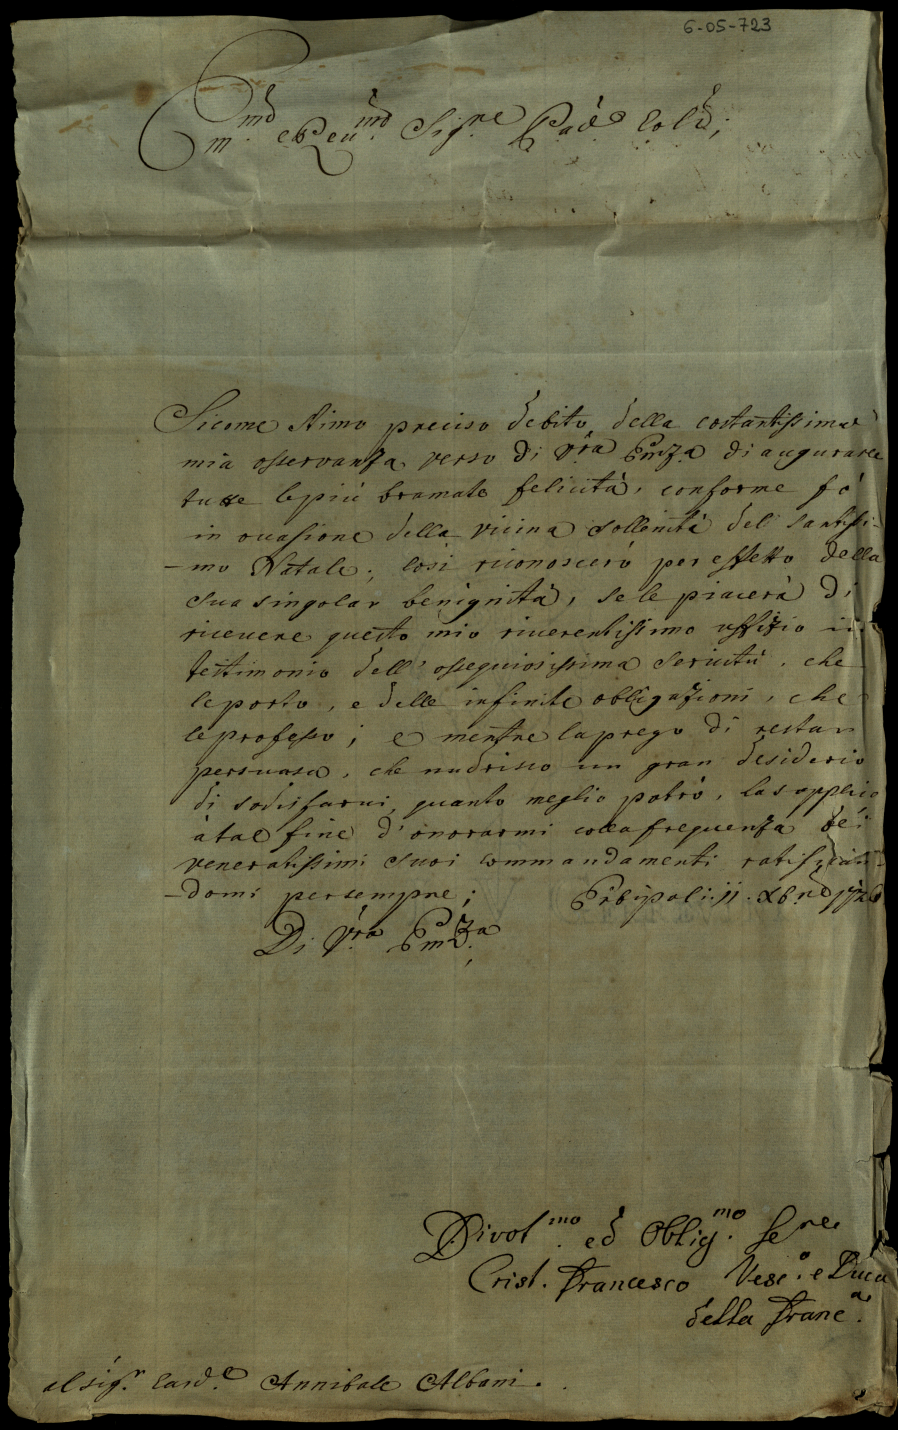 6-05-723
Em.mo e Reu.mo Sig.re Pad. Col.
Sicome stimo preciso debito della costantissima
mia osservanza verso di V.ra Emza di augurare
tutte le più bramate felicità, conforme fò
in ocasione della vicina sollenità del santissi-
-mo Natale; così riconoscerò per effetto della
sua singolar benignità, se le piacerà di
riceuere questo mio riuerentissimo uffizio in
testimonio dell'ossequiosissima seruitù, che
le porto, e delle infinite obbligazioni, che
le professo; e mentre la prego di restar
persuasa, che nudrisco un gran desiderio
di sodisfarui, quanto meglio potrò, la supplico
à tal fine d'onorarmi colla frequenza dei
veneratissimi suoi commandamenti ratifican-
-domi per sempre; Erbipoli: 11. Xb.re
Di V.ra Emza;
Divot.mo ed Oblig.mo Se.re
Crist. Francesco Vesc.o e Duca
della Franc.a
al sig.r Card.e Annibale Albani.